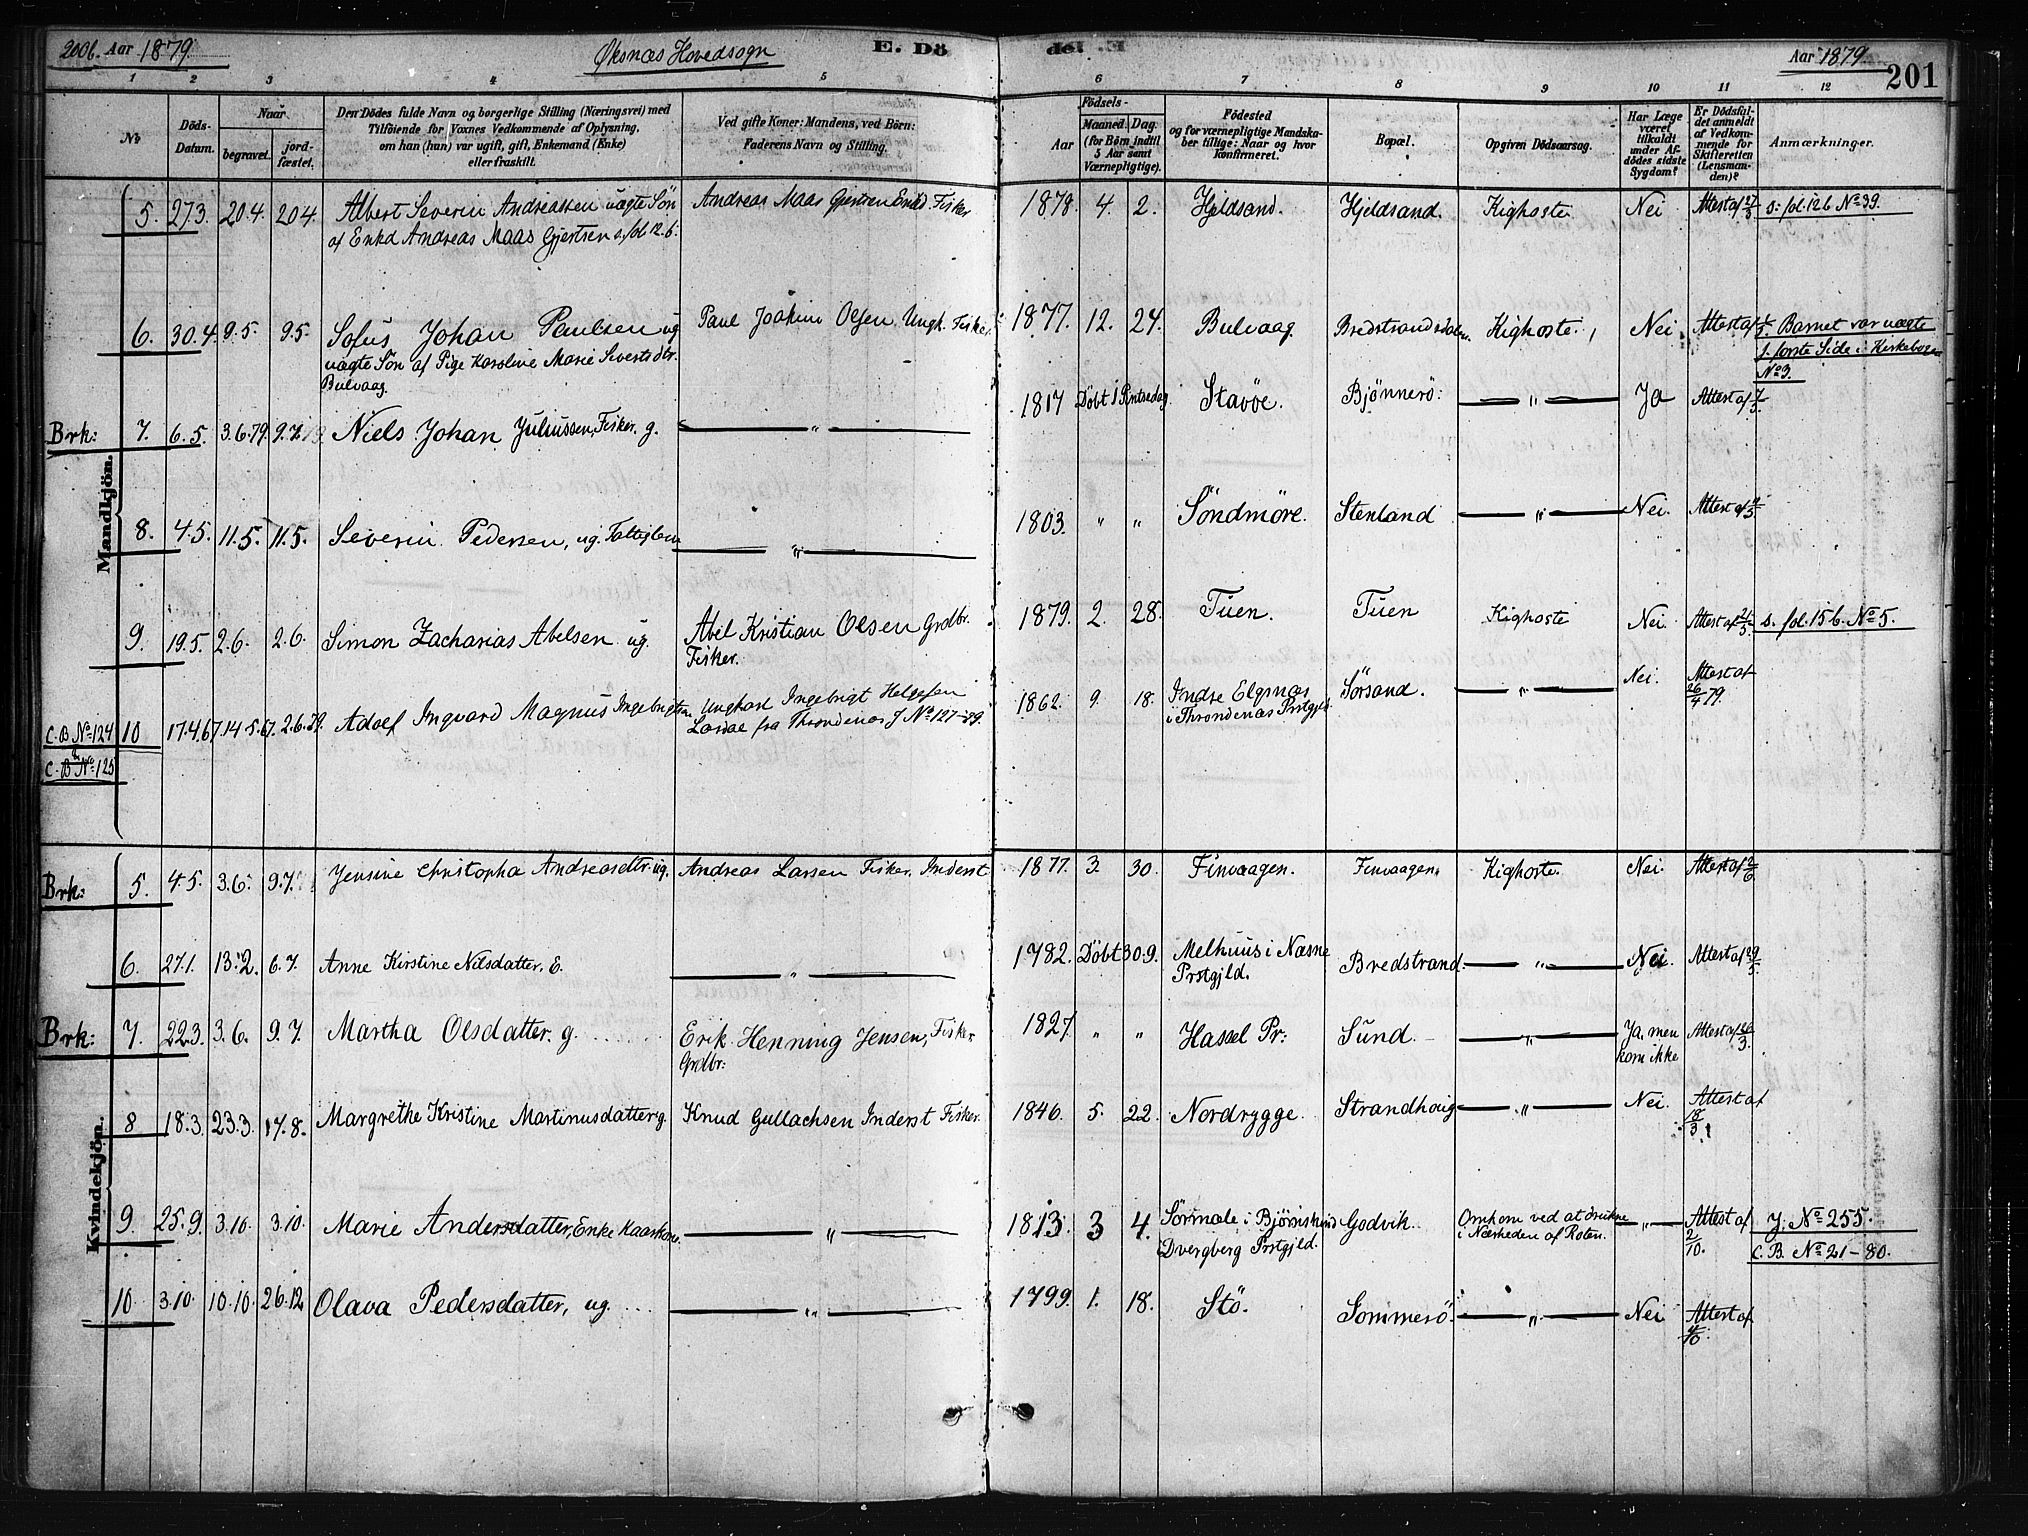 200b. Aar 1879. Øksnæs Hovedsogn E. Dö
del .E Aar 1879. 201
1 2 3 4 5 6 7 8 9 10 11 12
No Döds-Datum. Naar begravet. jordfæstet.
Den Dödes fulde Navn og borgerlige Stilling (Næringsvei) med
Tilföiende for Voxnes Vedkommende af Oplysning,
om han (hun) var ugift, gift, Enkemand (Enke)
eller fraskilt.
Ved gifte Koner: Mandens, ved Börn:
Faderens Navn og Stilling.
Födsels-
Aar Maaned. Dag.
(for Börn indtil
5 Aar samt
Værnepligtige).
Födested
og for værnepligtige Mandska-
ber tillige: Naar og hvor
konfirmeret.
Bopæl.
Opgiven Dödsaarsag.
Har Læge
været
tilkaldt
under Af-
dödes sidste
Sygdom?
Er Dödsfal-
det anmeldt
af Vedkom-
mende for
Skifteretten
(Lensman-
den)?
Anmærkninger.
Mandkjön.
5. 27.3. 20.4. 20.4. Albert Severin Andreassen uægte Sön Andreas Maas Gjertsen Enkd Fisker 1878. 4. 2. Hjeldsand. Hjeldsand. Kighoste Nei Attest af 27/3 s. fol. 12b No 39.
af Enkd Andreas Maas Gjertsen s. fol. 12.b.
6. 30.4. 9.5. 9.5. Sofus Johan Paulsen ug Paul Joakim Olsen Ungk. Fisker. 1877. 12. 24. Bulvaag. Bredstrandsdalen. Kighoste. Nei Attest af Barnet var uægte
uægte Sön af Pige Karoline Marie Sivertsdtr. s. förste Side i Kirkebogen
Bulvaag. No 3.
Brk: 7. 6.5. 3.6.79. 9.7. Niels Johan Juliussen, Fisker. g. — " — 1817 Döbt 1 Pintsedag. Stavöe. Bjönnerö. — " — Ja Attest af 7/5
8. 4.5. 11.5. 11.5. Severin Pedersen, ug. Fattiglem — " — 1803. " " Söndmöre. Stenland — " — Nei. Attest af
9. 19.5. 2.6. 2.6. Simon Zacharias Abelsen ug. Abel Kristian Olsen Grdbr. 1879. 2. 28. Tuen. Tuen Kighoste Nei Attest af 21/5. s. fol. 15b. No 5.
Fisker.
C.B No 124 10 17.4.67. 14.5.67. 2.6.79. Adolf Ingvard Magnus Ingebrigtsen Ungkarl Ingebrigt Helgesen 1862. 9. 18. Indre Elgsnæs Sørsand. — " — Nei. Attest af
& C.B No 125 fra Throndenæs J No 127-79. i Throndenæs Prstgjld. 26/4 79.
Kvindekjön.
Brk: 5. 4.5. 3.6. 9.7. Jensine Christopha Andreasdtter ug. Andreas Larsen Fisker, Inderst 1877. 3. 30. Finvaagen. Finvaagen. Kighoste. Nei. Attest af 2/6
6. 27.1. 13.2. 6.7. Anne Kirstine Nilsdatter. E. — " — 1782. Döbt 30.9. Melhuus i Næsne Bredstrand. — " — Nei. Attest af 29/5.
Prstgjld.
Brk: 7. 22.3. 3.6. 9.7. Martha Olsdatter. g. Erik Henning Jensen, Fisker 1827. " " Hassel Pr: Sund. — " — Ja, men Attest af 26/3.
Grdbr: kom ikke
8 18.3. 23.3. 17.8. Margrethe Kristine Martinusdatter g. Knud Gullachsen Inderst Fisker. 1846. 5. 22. Nordrygge. Strandhaug — " — Nei. Attest af
18/3.
9. 25.9. 3.10. 3.10. Marie Andersdatter, Enke Kaarkone. — " — 1813. 3 4. Sørmæle i Bjørnskind Godvik. Omkom ved at drukne — " — Attest af J. No 255.
Dvergberg Prstgjld. i Nærheden af Roten. 2/10. C.B. No 21-80.
10. 3.10. 10.10. 26.12 Olava Pedersdatter, ug. — " — 1799. 1. 18. Stö. Sommerö. — " — Nei Attest af
4/10.